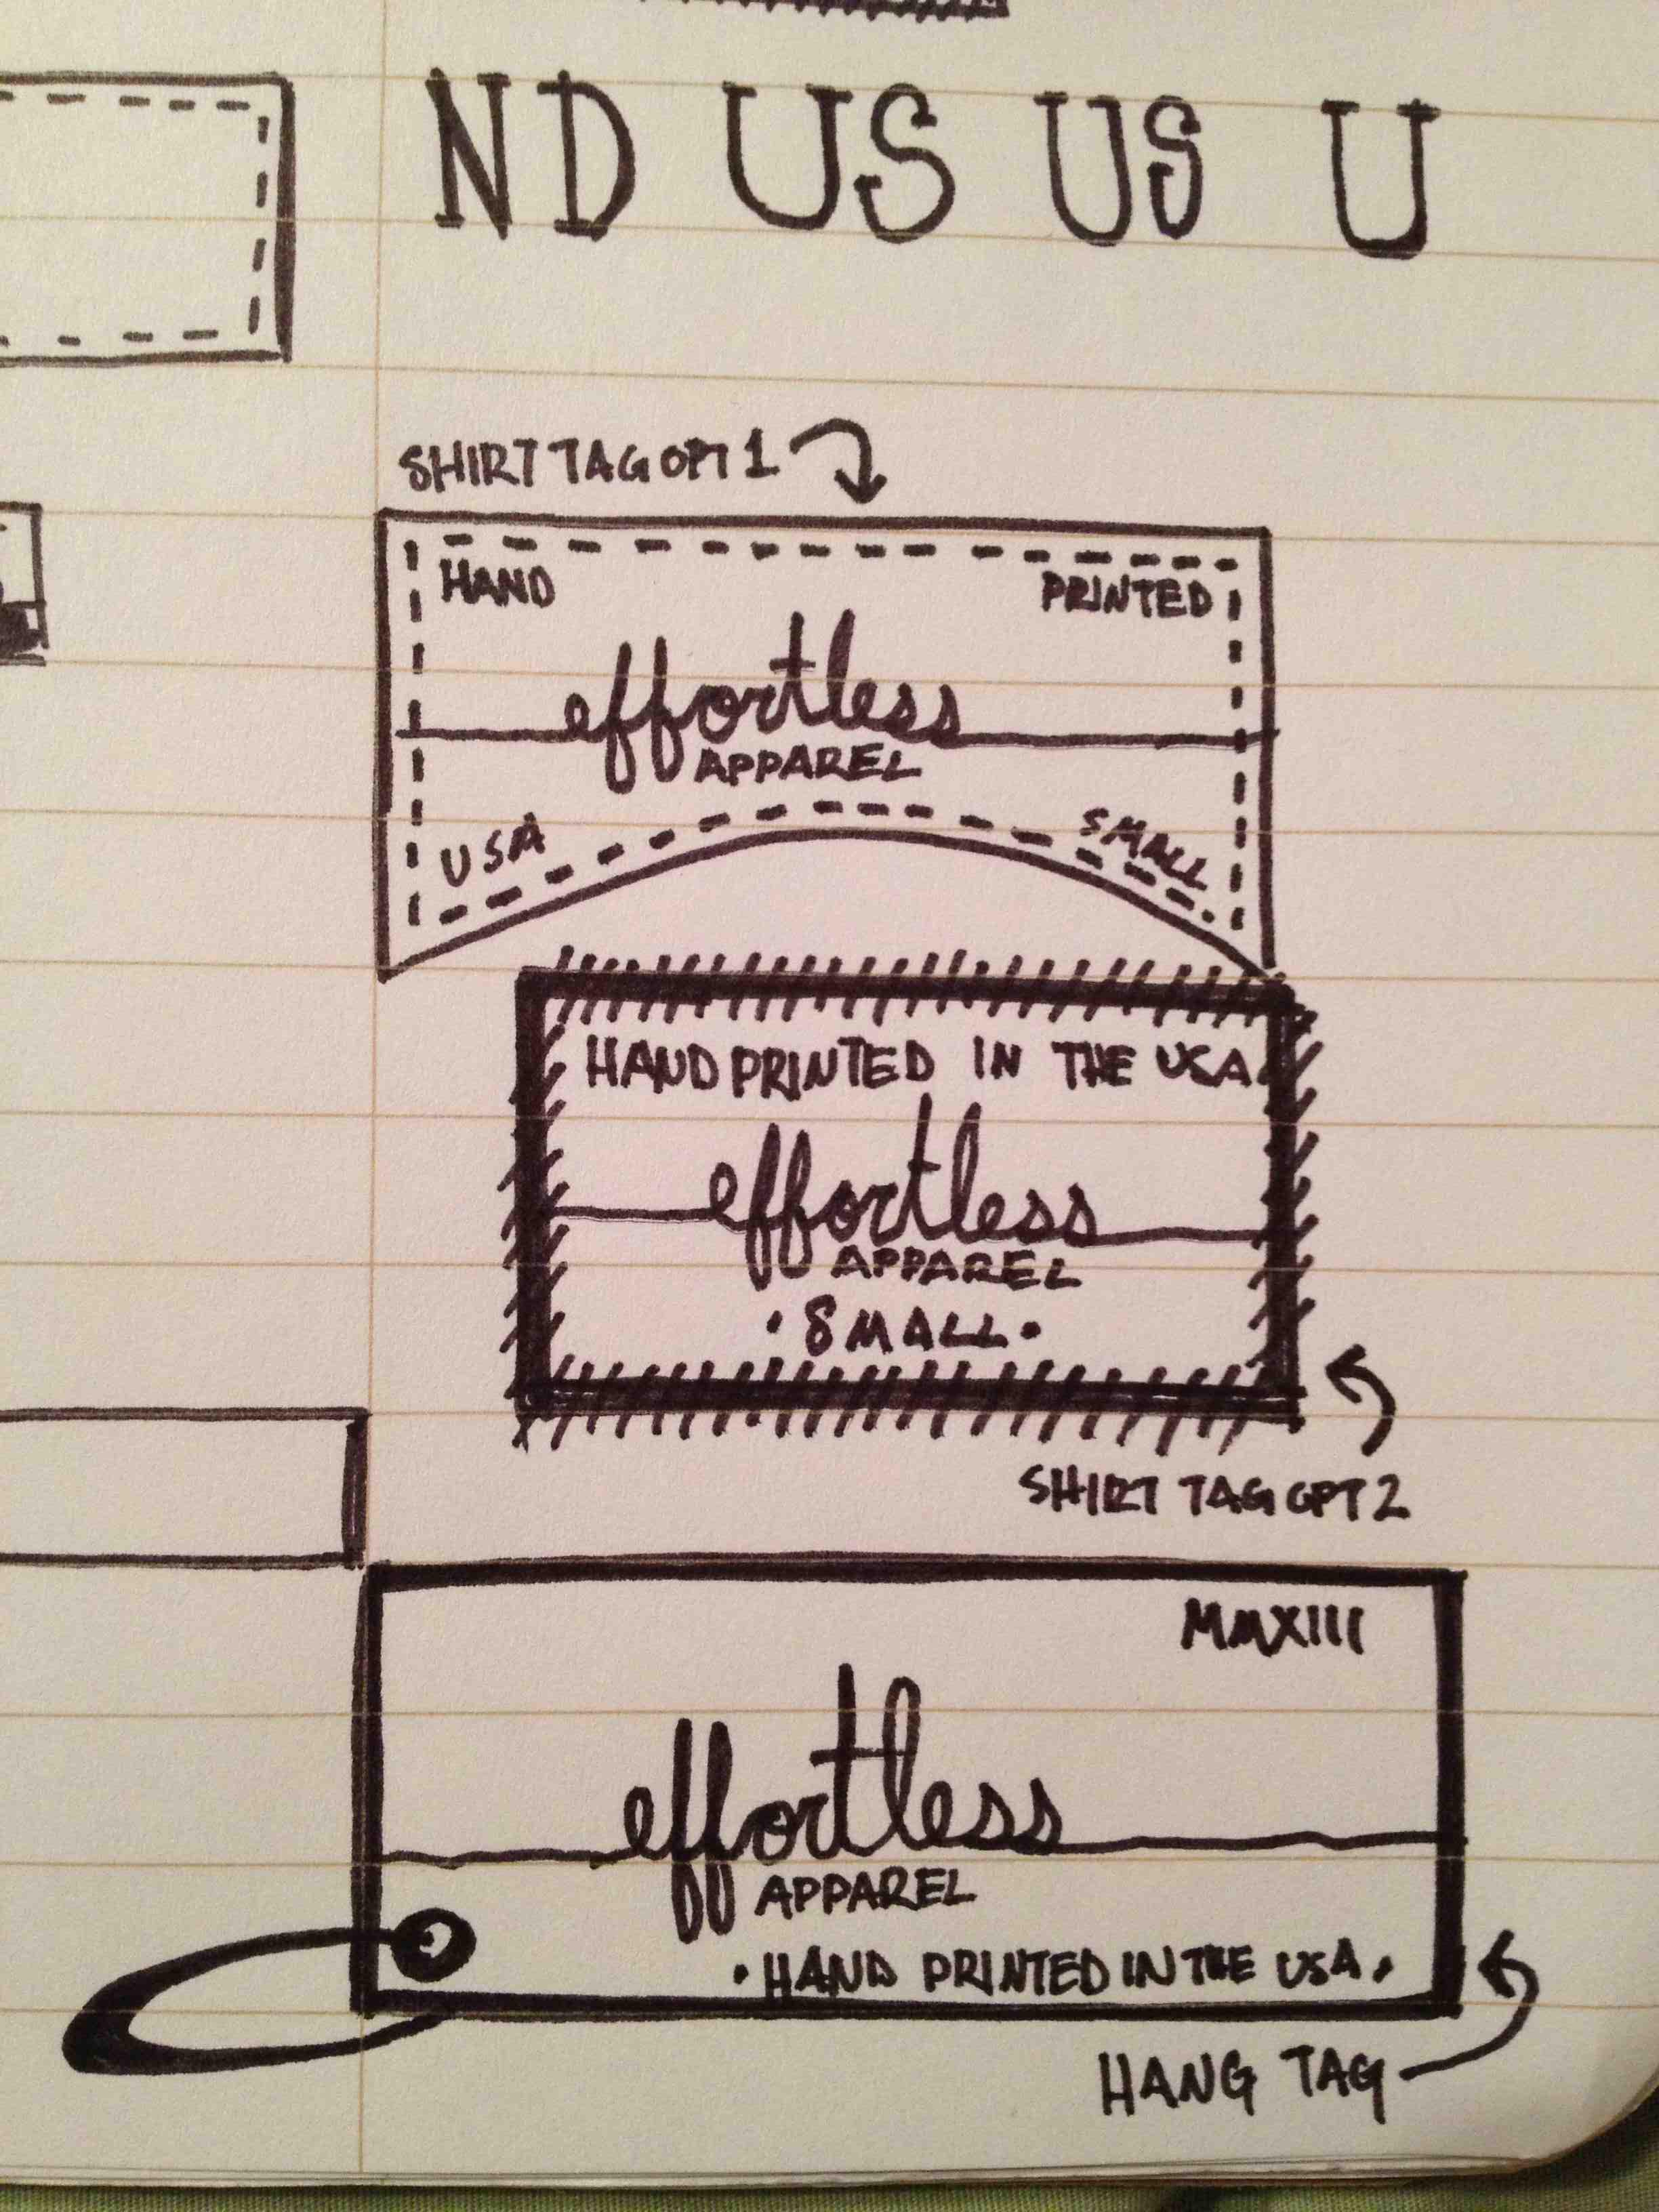 ND US US U
SHIRT TAG OPT 1
HAND PRINTED
effortless
APPAREL
USA SMALL
HAND PRINTED IN THE USA
effortless
APPAREL
• SMALL •
SHIRT TAG OPT 2
MMXIII
effortless
APPAREL
• HAND PRINTED IN THE USA •
HANG TAG